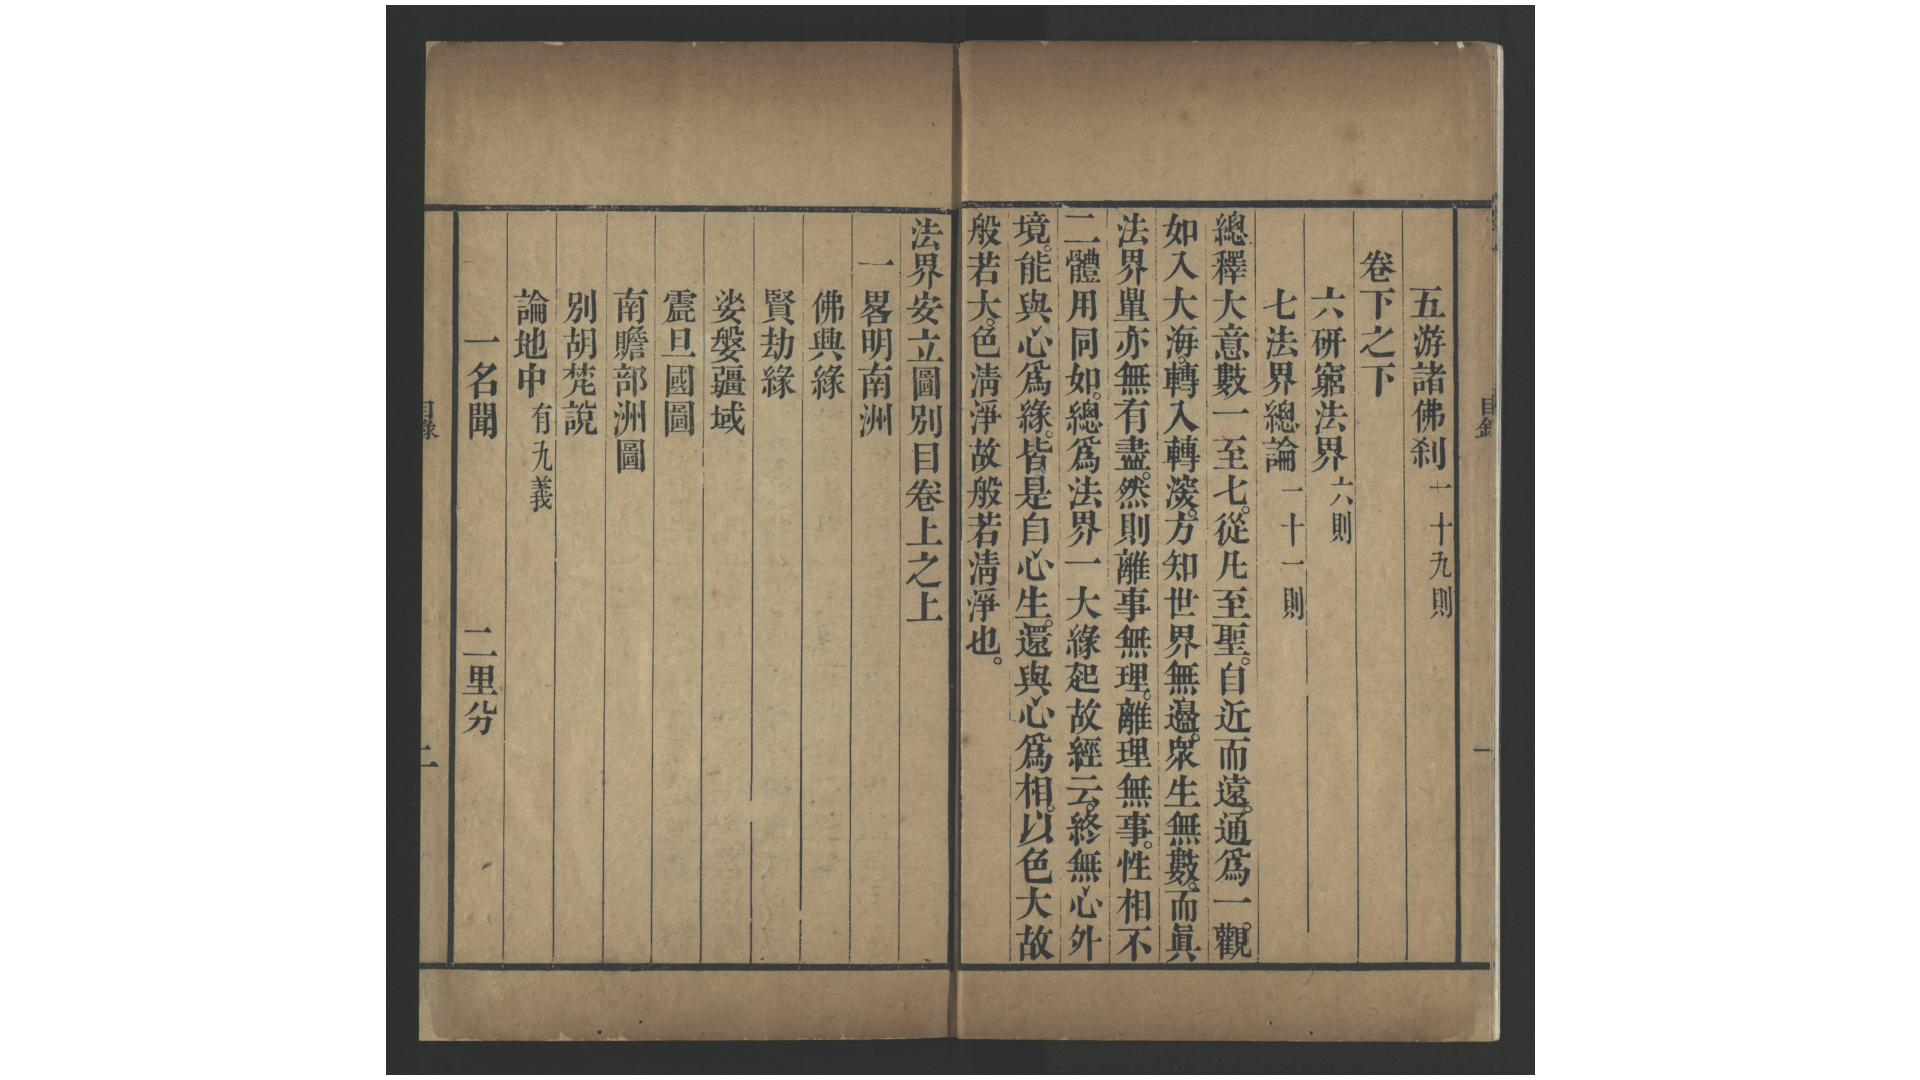 五游諸佛刹一十九則
卷下之下
六研窮法界六則
七法界總論一十一則
總釋大意數一至七。從凡至聖。自近而遠。通爲一。觀
如入大海。轉入轉深。方知世界無邊。衆生無數。而眞
法界量亦無有盡。然則離事無理。離理無事。性相不
二體用同如。總爲法界一大緣起故經云。終無心外
境。能與心爲緣。皆是自心生。還與心爲相。以色大故
般若大。色淸淨故般若淸淨也。
目錄
一
法界安立圖別目卷上之上
一畧明南洲
佛興緣
賢劫緣
娑婆疆域
震旦國圖
南贍部洲圖
別胡梵說
論地中有九義
一名聞 二里分
目錄
二